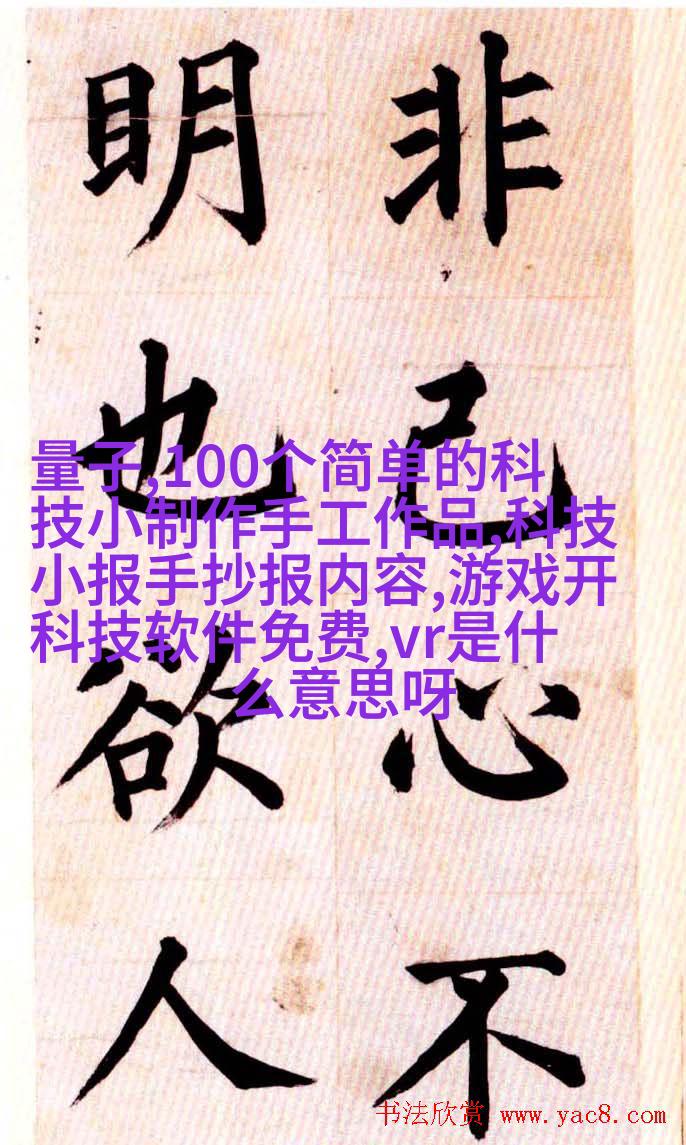 非己心不
明也欲人
量子,100个简单的科
技小制作手工作品,科技
小报手抄报内容,游戏开
科技软件免费,vr是什
么意思呀
书法欣赏 www.yac8.com